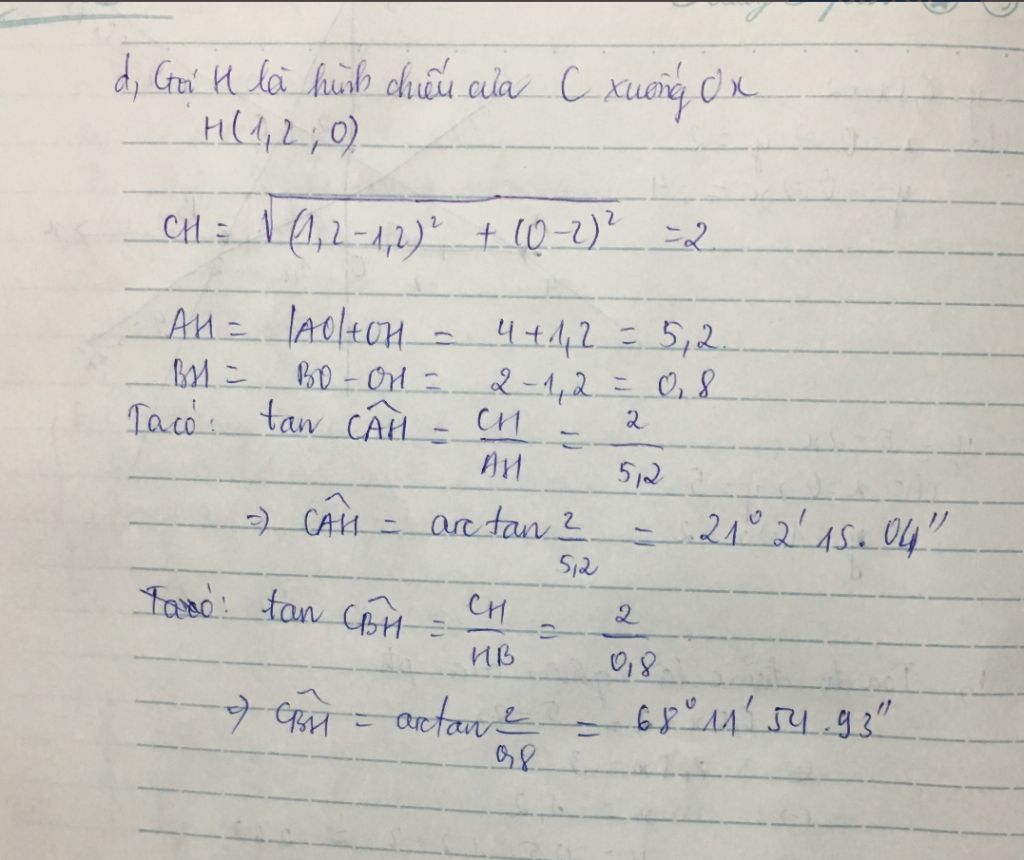 d, Gọi H là hình chiếu của C xuống Ox
H(1,2 ; 0)
CH = √(1,2-1,2)² + (0-2)² = 2
AH = |AO|+OH = 4+1,2 = 5,2.
BH = BO - OH = 2-1,2 = 0,8
Ta có: tan CAH = CH/AH = 2/5,2
=> CAH = arctan 2/5,2 = 21° 2' 15.04"
Ta có: tan CBH = CH/HB = 2/0,8
=> CBH = arctan 2/0,8 = 68° 11' 54.93"